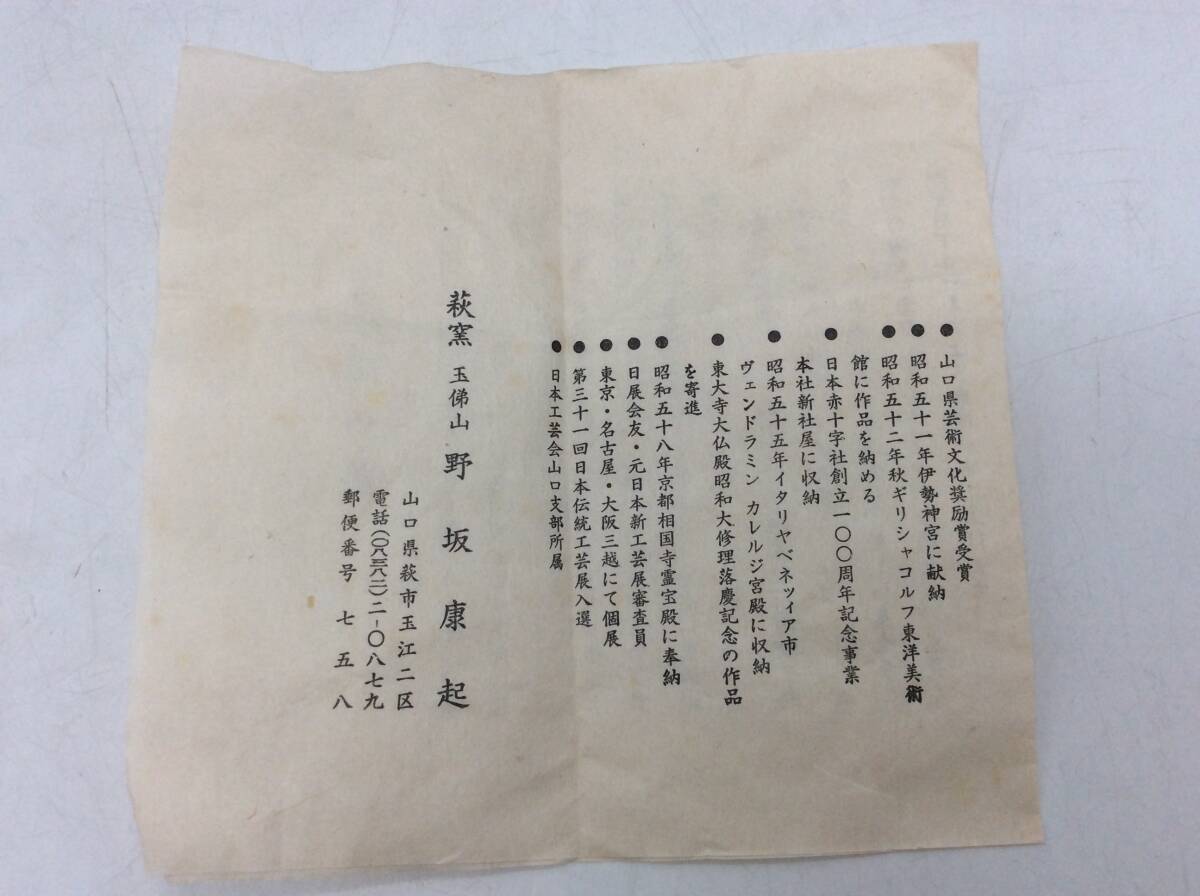 ●山口県芸術文化奨励賞受賞
●昭和五十一年伊勢神宮に献納
●昭和五十二年秋ギリシャコルフ東洋美術
館に作品を納める
●日本赤十字社創立一〇〇周年記念事業
本社新社屋に収納
●昭和五十五年イタリヤベネッィア市
ヴェンドラミン カレルジ宮殿に収納
●東大寺大仏殿昭和大修理落慶記念の作品
を寄進
●昭和五十八年京都相国寺霊宝殿に奉納
●日展会友・元日本新工芸展審査員
●東京・名古屋・大阪三越にて個展
●第三十一回日本伝統工芸展入選
●日本工芸会山口支部所属
萩窯 玉俤山 野坂康起
山口県萩市玉江二区
電話(〇八三八二)二-〇八七九
郵便番号 七五八